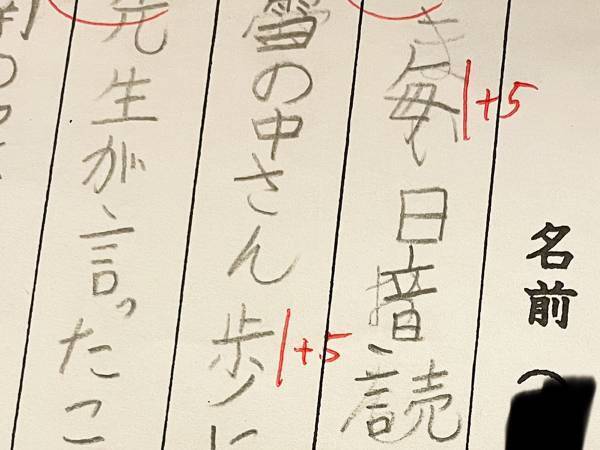 名前(
毎日音読
+5
雪の中さん歩に
+5
先生が言ったこ